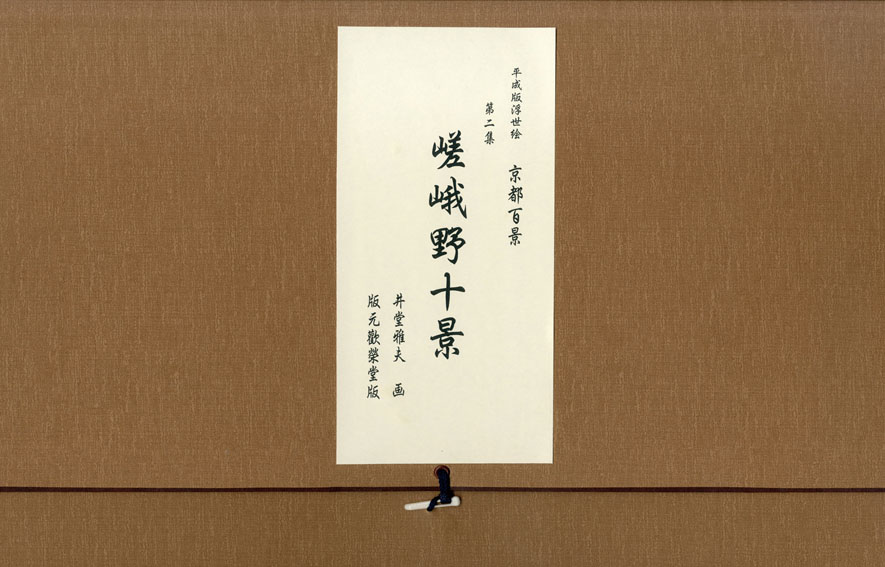 平成版浮世絵 京都百景
第二集
嵯峨野十景
井堂雅夫 画
版元歡榮堂版